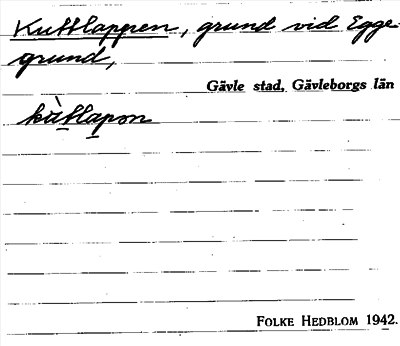 Kuttlappen, grund vid Egge-
grund,
Gävle stad, Gävleborgs län
kùtlapɷn
FOLKE HEDBLOM 1942.